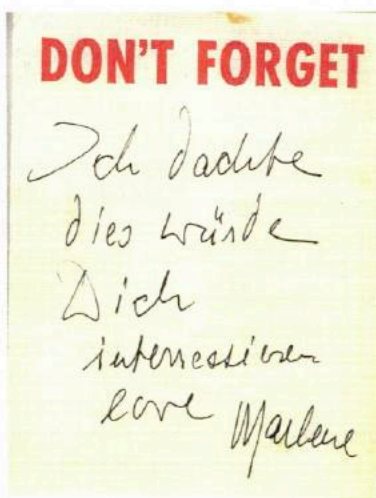 DON'T FORGET
Ich dachte
dies würde
Dich
interressieren
love Marlene